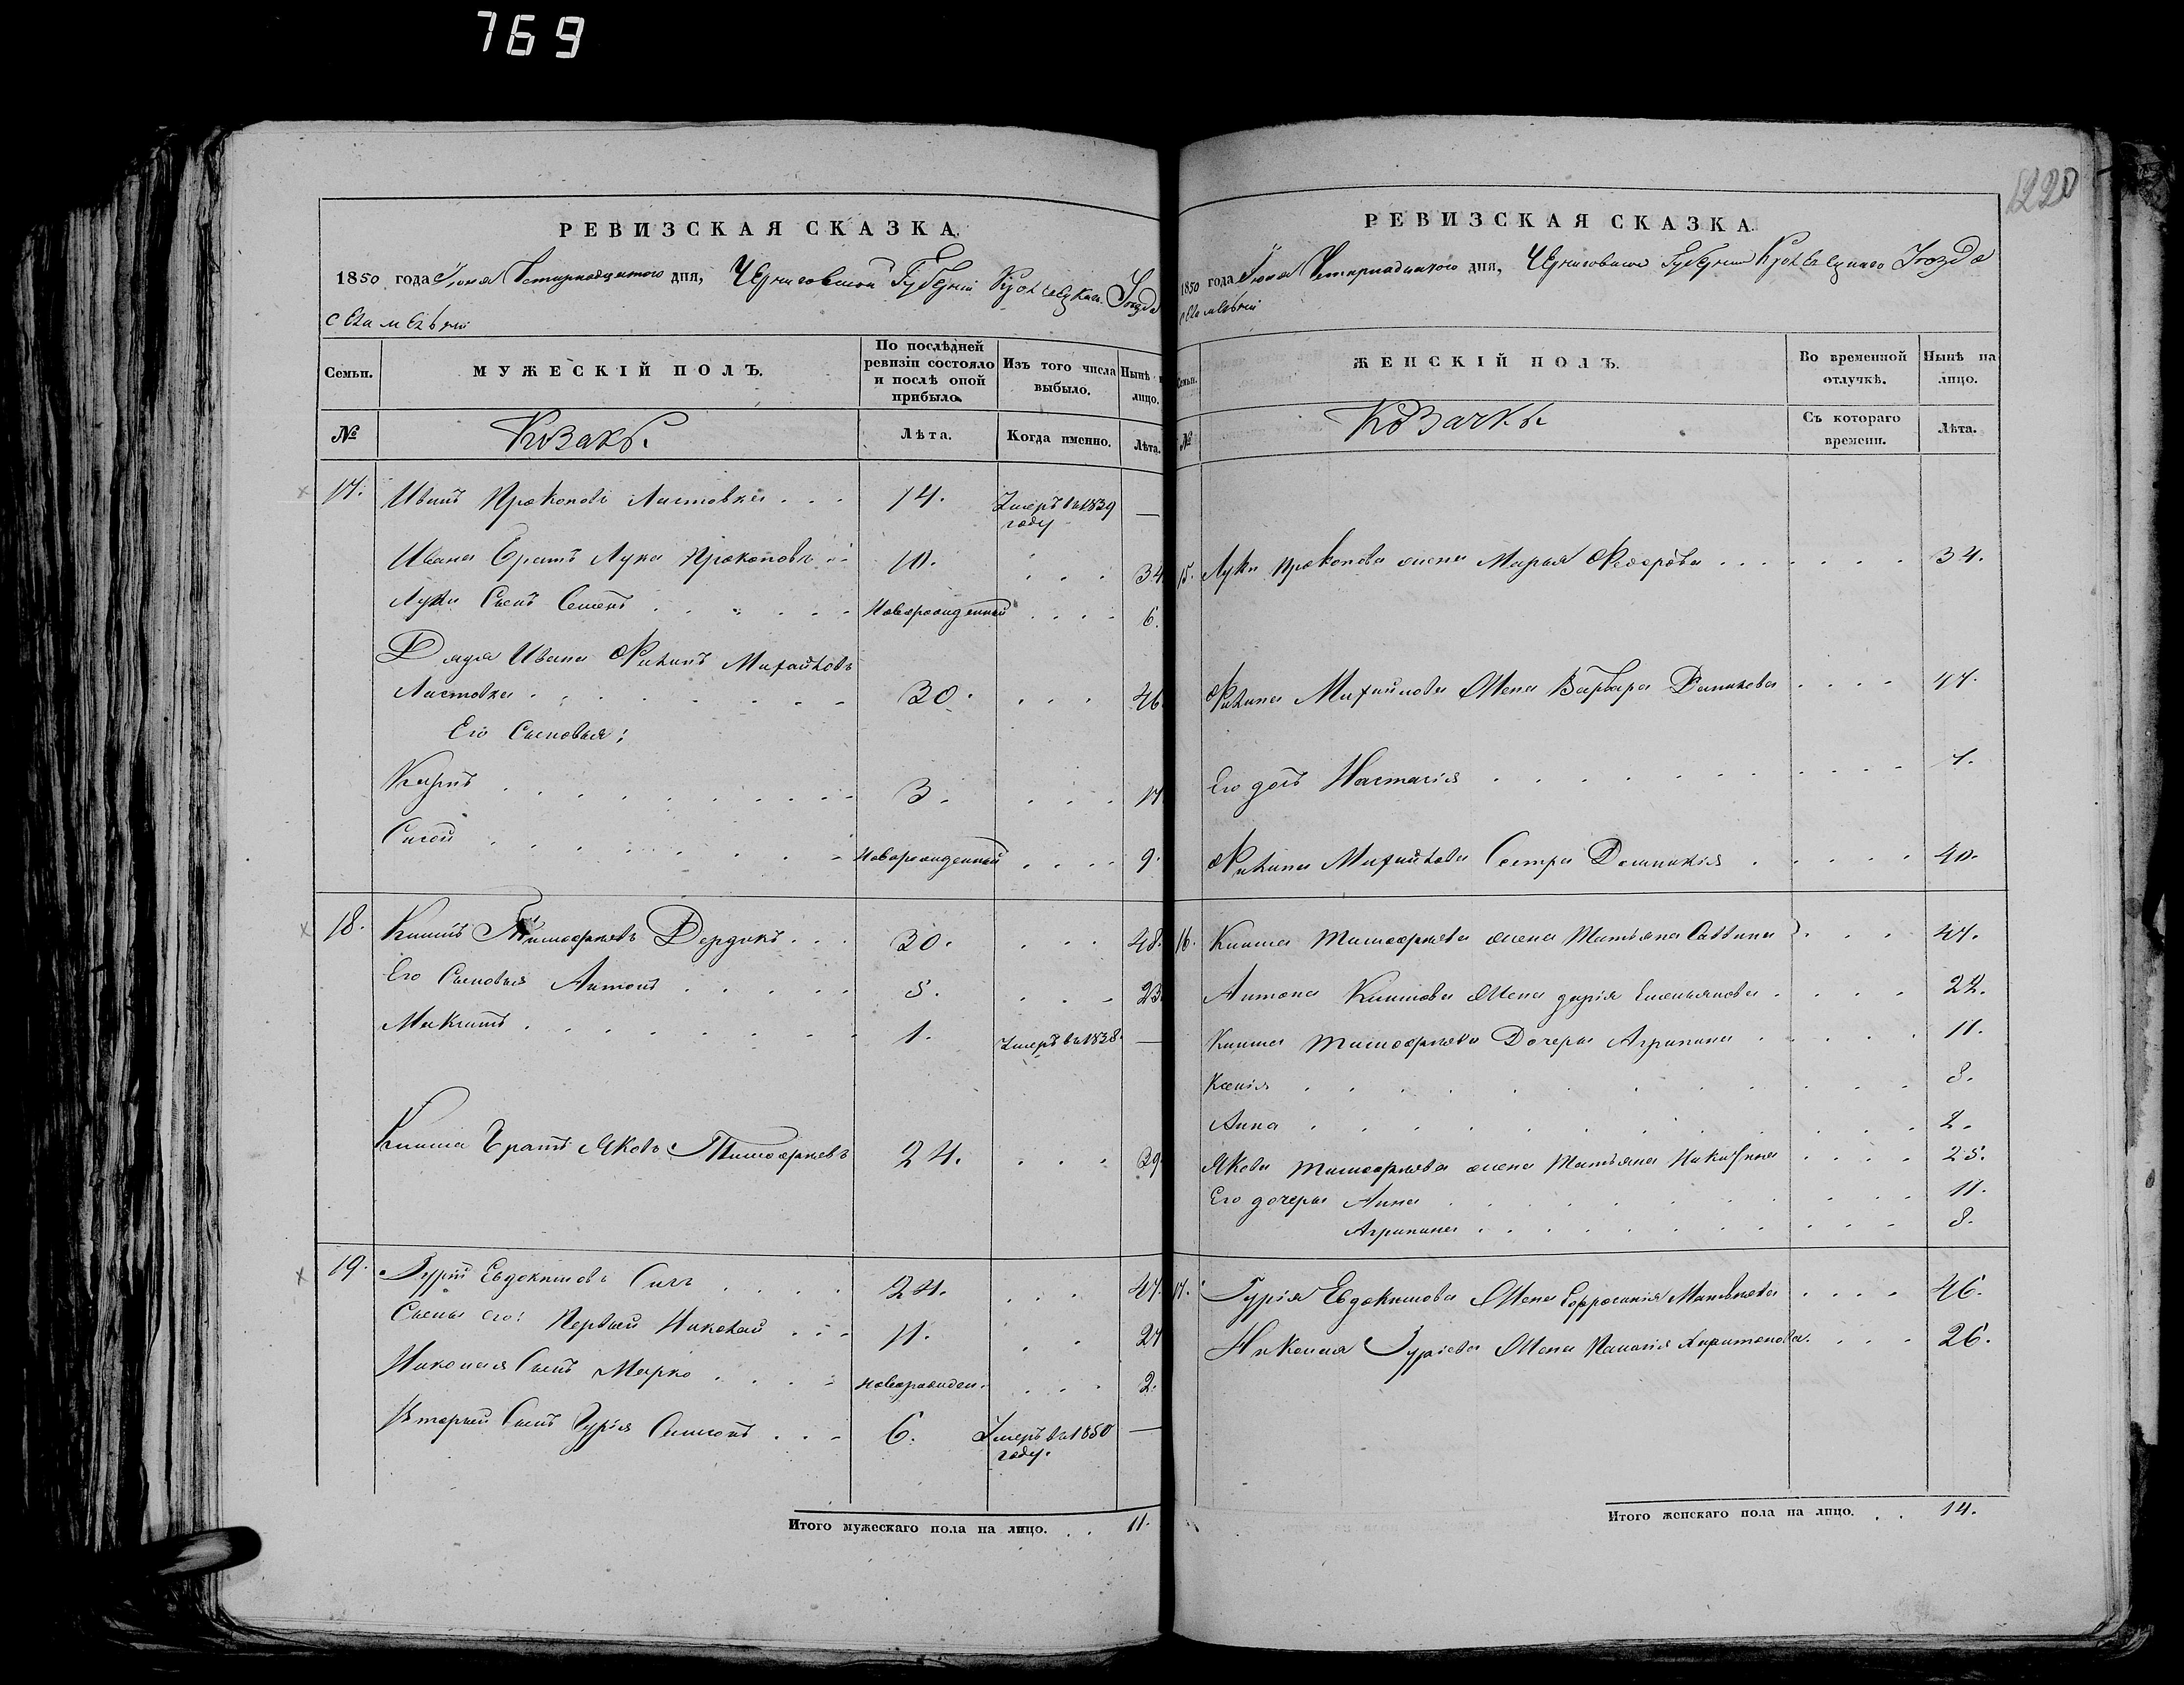 769
1220
РЕВИЗСКАЯ СКАЗКА.
1850 года Іюня Четырнадцатого дня, Черниговской Губерніи Кролевецкаго Уезда
Семьи.
МУЖЕСКІЙ ПОЛЪ.
По послѣдней ревизіи состояло и послѣ оной прибыло.
Изъ того числа выбыло.
Нынѣ лицо.
№
Козакъ.
Лѣта.
Когда именно.
Лѣта.
17. Иванъ Прокоповъ Листовка . . . 14. Умеръ въ 1839 —
году
Ивана братъ Лука Прокоповъ 34
Луки Сынъ Семенъ . . . Новорожденный . . . 6.
Дядя Ивана Филипъ Михайловъ
Листовка . . . 30. . . . 46
Его Сыновья:
Карпъ . . . 3. . . . 17
Сисой . . . Новорожденный . . . 9.
18. Климъ Тимофѣевъ Дердикъ . . . 30. . . . 48.
Его Сыновья Антонъ . . . 5. . . . 23
Микита . . . 1. Умеръ въ 1838. —
Клима Братъ Яковъ Тимофѣевъ 24. . . . 39
19. Гурій Евдокимовъ Сичъ . . . 24. . . . 47.
Сыны его: Первый Николай . . . 11. . . 27
Николая Сынъ Марко . . . новорожден. . . . 2.
Вторый Сынъ Гурія Симонъ . . . 6. Умеръ въ 1850 —
году.
Итого мужескаго пола на лицо. . . 11.
РЕВИЗСКАЯ СКАЗКА.
1850 года Іюня Четырнадцатого дня, Черниговской Губерніи Кролевецкаго Уезда
Семьи.
ЖЕНСКІЙ ПОЛЪ.
Во временной отлучкѣ.
Нынѣ на лицо.
№
Козачкъ
Съ котораго времени.
Лѣта.
15. Луки Прокопова жена Марья Федорова . . . 34.
Филипа Михайлова Жена Варвара Данилова . . . 44.
Его дочь Настасія . . . 7.
Филипа Михайлова Сестра Домникія . . . 40.
16. Клима Тимофѣева жена Татьяна Саввина . . . 47.
Антона Климова Жена дарія Емельянова . . . 22.
Клима Тимофѣева Дочеры Агрипина . . . 11.
Ксенія . . . 8.
Анна . . . 2.
Якова Тимофѣева жена Татьяна Никифина . . . 25.
Его дочеры Анна . . . 11.
Агрипина . . . 8.
17. Гурія Евдокимова Жена Ефросинія Матвѣева . . . 46.
Николая Гуріева Жена Пелагія Харитонова . . . 26.
Итого женскаго пола на лицо. . . 14.